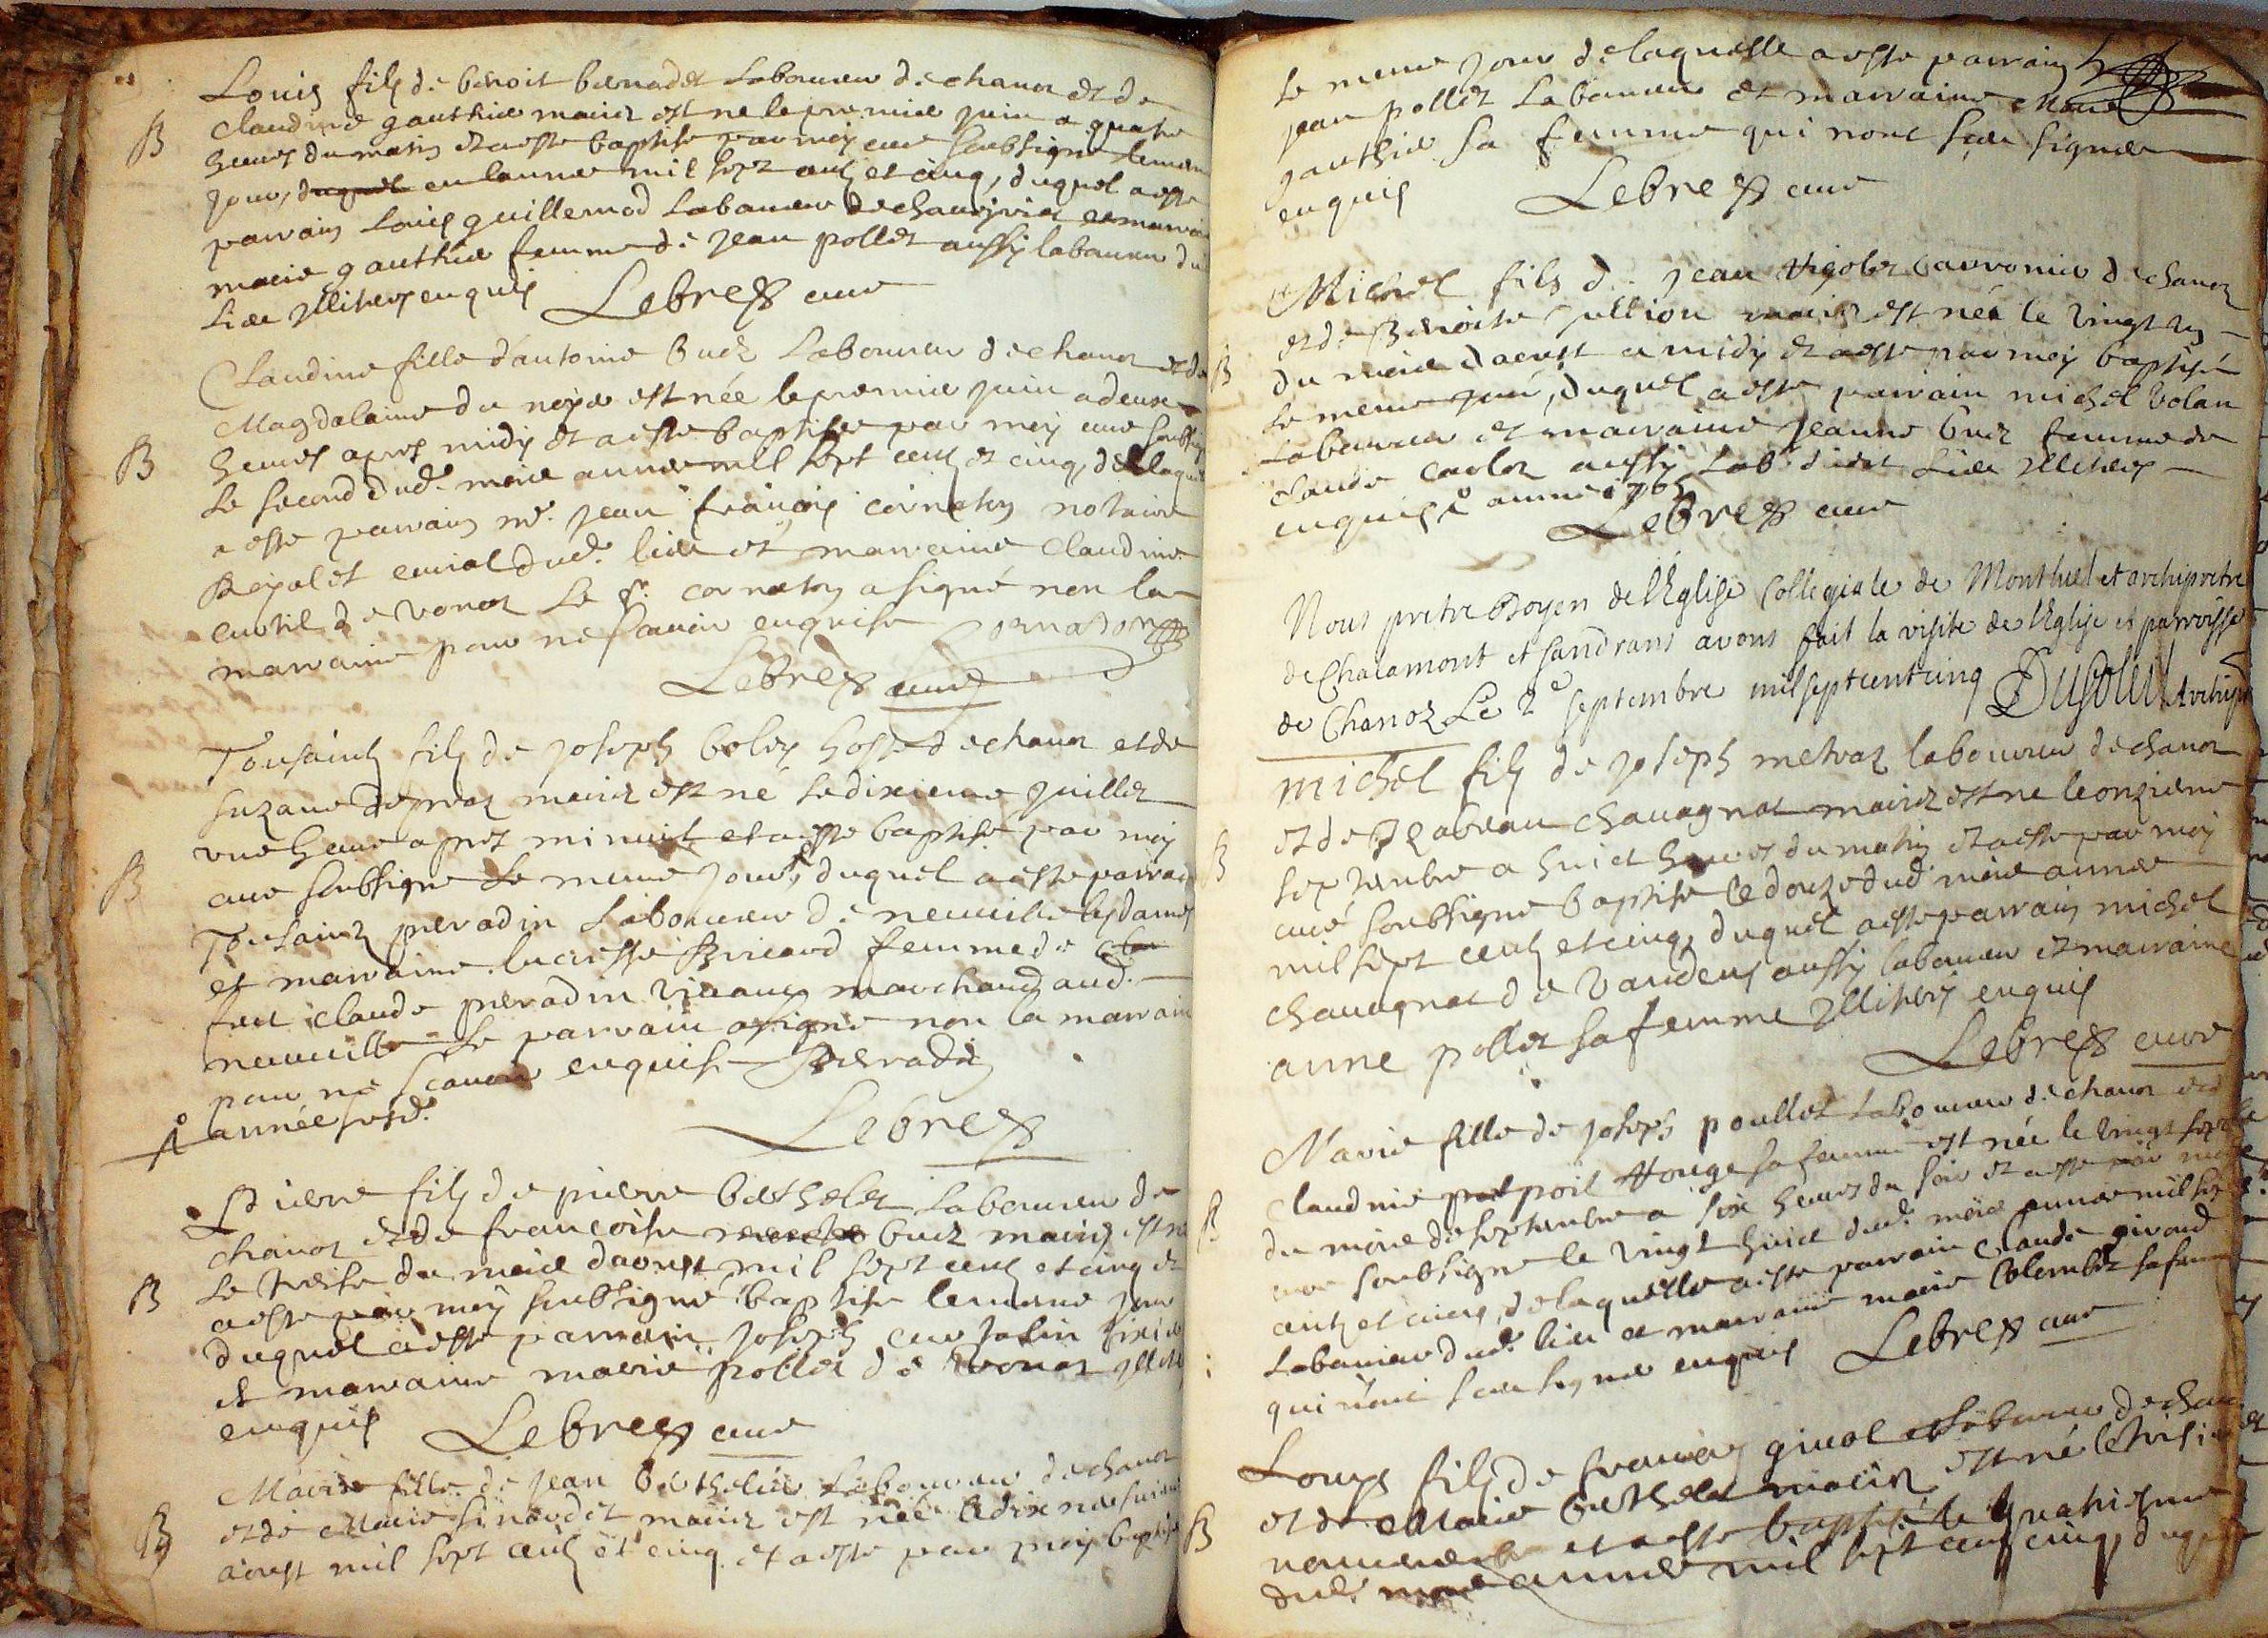 Louis fils de benoit bernadet Laboureur de chanoz et de
B
claudine gauthier mariez est ne le premier juin a quatre
heures du matin et a esté baptisé par moy curé soubsigné le mesme
jour, duquel en lannée mil sept centz et cinq, duquel a esté
parrain Louis guillermod Laboureur de et marraine
marie gauthier femme de jean pollet aussy laboureur du
lieu jlliterez enquis
Lebrez curé
Claudine fille d'antoine buez Laboureur de chanoz et de
Magdelaine du noyer est née le premier juin a deux
B
heures apres midy et a esté baptisée par moy curé soubsigné
Le second dud. mois année mil sept centz et cinq, de laquelle
a esté parrain me. jean françois cornaton notaire
Royal et curial dud. lieu et marraine claudine
curtil de vonoz Le sr. cornaton a signé non la
marraine pour ne scavoir enquise Cornaton
Lebrez curé
Tousaintz fils de joseph boley hoste de chanoz et de
suzane mariez est né le dixieme juillet
une heure apres minuit et a esté baptisé par moy
B
curé soubsigné Le mesme jour, duquel a esté parrain
Tousainz peradin Laboureur de neuville les dames
et marraine lucresse Bricaud femme de clau
feu claude peradin vivant marchand aud.
neuville Le parrain a signé non la marraine
pour ne scavoir enquise Peradin
année susd.
Lebrez
Pierre fils de pierre bertholet Laboureur de
chanoz et de francoise buez mariez est né
B
Le treise du mois daoust mil sept centz et cinq et
a esté par moy soubsigné baptisé le mesme jour
duquel a esté parrain joseph
et marraine marie pollet de vonoz jlliterez
enquis
Lebrez curé
Marie fille de jean bertholet Laboureur de chanoz
B
et de Marie mariez est née le dix neufvieme
aoust mil sept centz et cinq et a esté par moy baptisée
Le mesme jour de laquelle a esté parrain
jean pollet Laboureur et marraine Marie
gauthier sa femme qui nont sceu signer
enquis
Lebrez curé
Michel fils de jean de chanoz
et de Benoite jullion mariez est né le vingt un
B
du mois daoust a midy et a esté par moy baptisé
Le mesme jour, duquel a esté parrain michel volan
Laboureur et marraine jeanne buez femme de
claude carloz aussy Lab. dud. lieu jlliterez
enquis année 1705
Lebrez curé
Nous pretre Doyen de l'Eglise Collegiale de Montluel et archipretre
de Chalamont et Sandrans avons fait la visite de l'Eglise et parroisse
de Chanoz Le 2e septembre mil sept cent cinq Archip
michel fils de joseph metraz laboureur de chanoz
et de Jzabeau chavagnat mariez est ne le onzieme
B
septembre a huict heures du matin et a esté par moy
curé soubsigné baptisé le douze dud. mois année
mil sept centz et cinq, duquel a esté parrain michel
chavagnat de Vandeins aussy laboureur et marraine
anne pollet sa femme jlliterez enquis
Lebrez curé
Marie fille de joseph poullet Laboureur de chanoz et de
claudine poil rouge sa femme est née le vingt sept
B
du mois de septembre a six heures du soir et a esté par moy
curé soubsigné le vingt huict dud. mois année mil sept
centz et cinq, de laquelle a esté parrain claude giroud
Laboureur dud. lieu et marraine marie Colombet sa femme
qui nont sceu signer enquis
Lebrez curé
Louys fils de francois givol Laboureur de chanoz
et de Marie berthelet mariez est né le troisieme
B
novembre et a esté baptisé le quatriesme
dud. mois année mil sept centz cinq, duquel